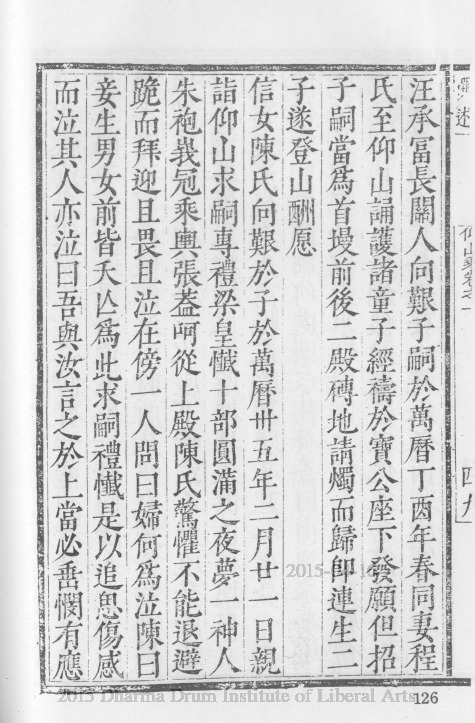 汪承冨長關人向艱子嗣於萬曆丁酉年春同妻程
氏至仰山誦護諸童子經禱於寶公座下發願但招
子嗣當爲首墁前後二殿磚地請燭而歸卽連生二
子遂登山酬愿
信女陳氏向艱於子於萬曆卅五年二月廿一日親
詣仰山求嗣專禮梁皇懴十部圓滿之夜夢一神人
朱袍峩冠乘輿張葢呵從上殿陳氏驚懼不能退避
跪而拜迎且畏且泣在傍一人問曰婦何爲泣陳曰
妾生男女前皆夭亾爲此求嗣禮懴是以追思傷感
而泣其人亦泣曰吾與汝言之於上當必垂憫有應
四九
126
2015 Dharma Drum Institute of Liberal Arts